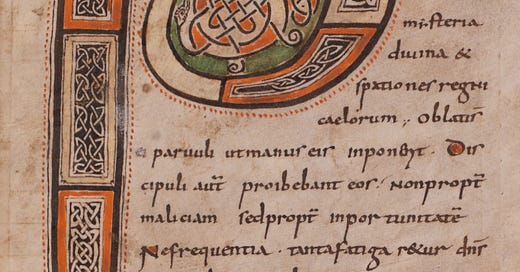 misteria
divina &
spationes regni
caelorum ;, Oblatis
ei parvuli ut manus eis inponer&. Dis
cipuli aut̄ proibebant eos. non propt̄
maliciam sed propt̄ inportunitatē
Ne frequentia. tanta fatigar&ur dn̄s